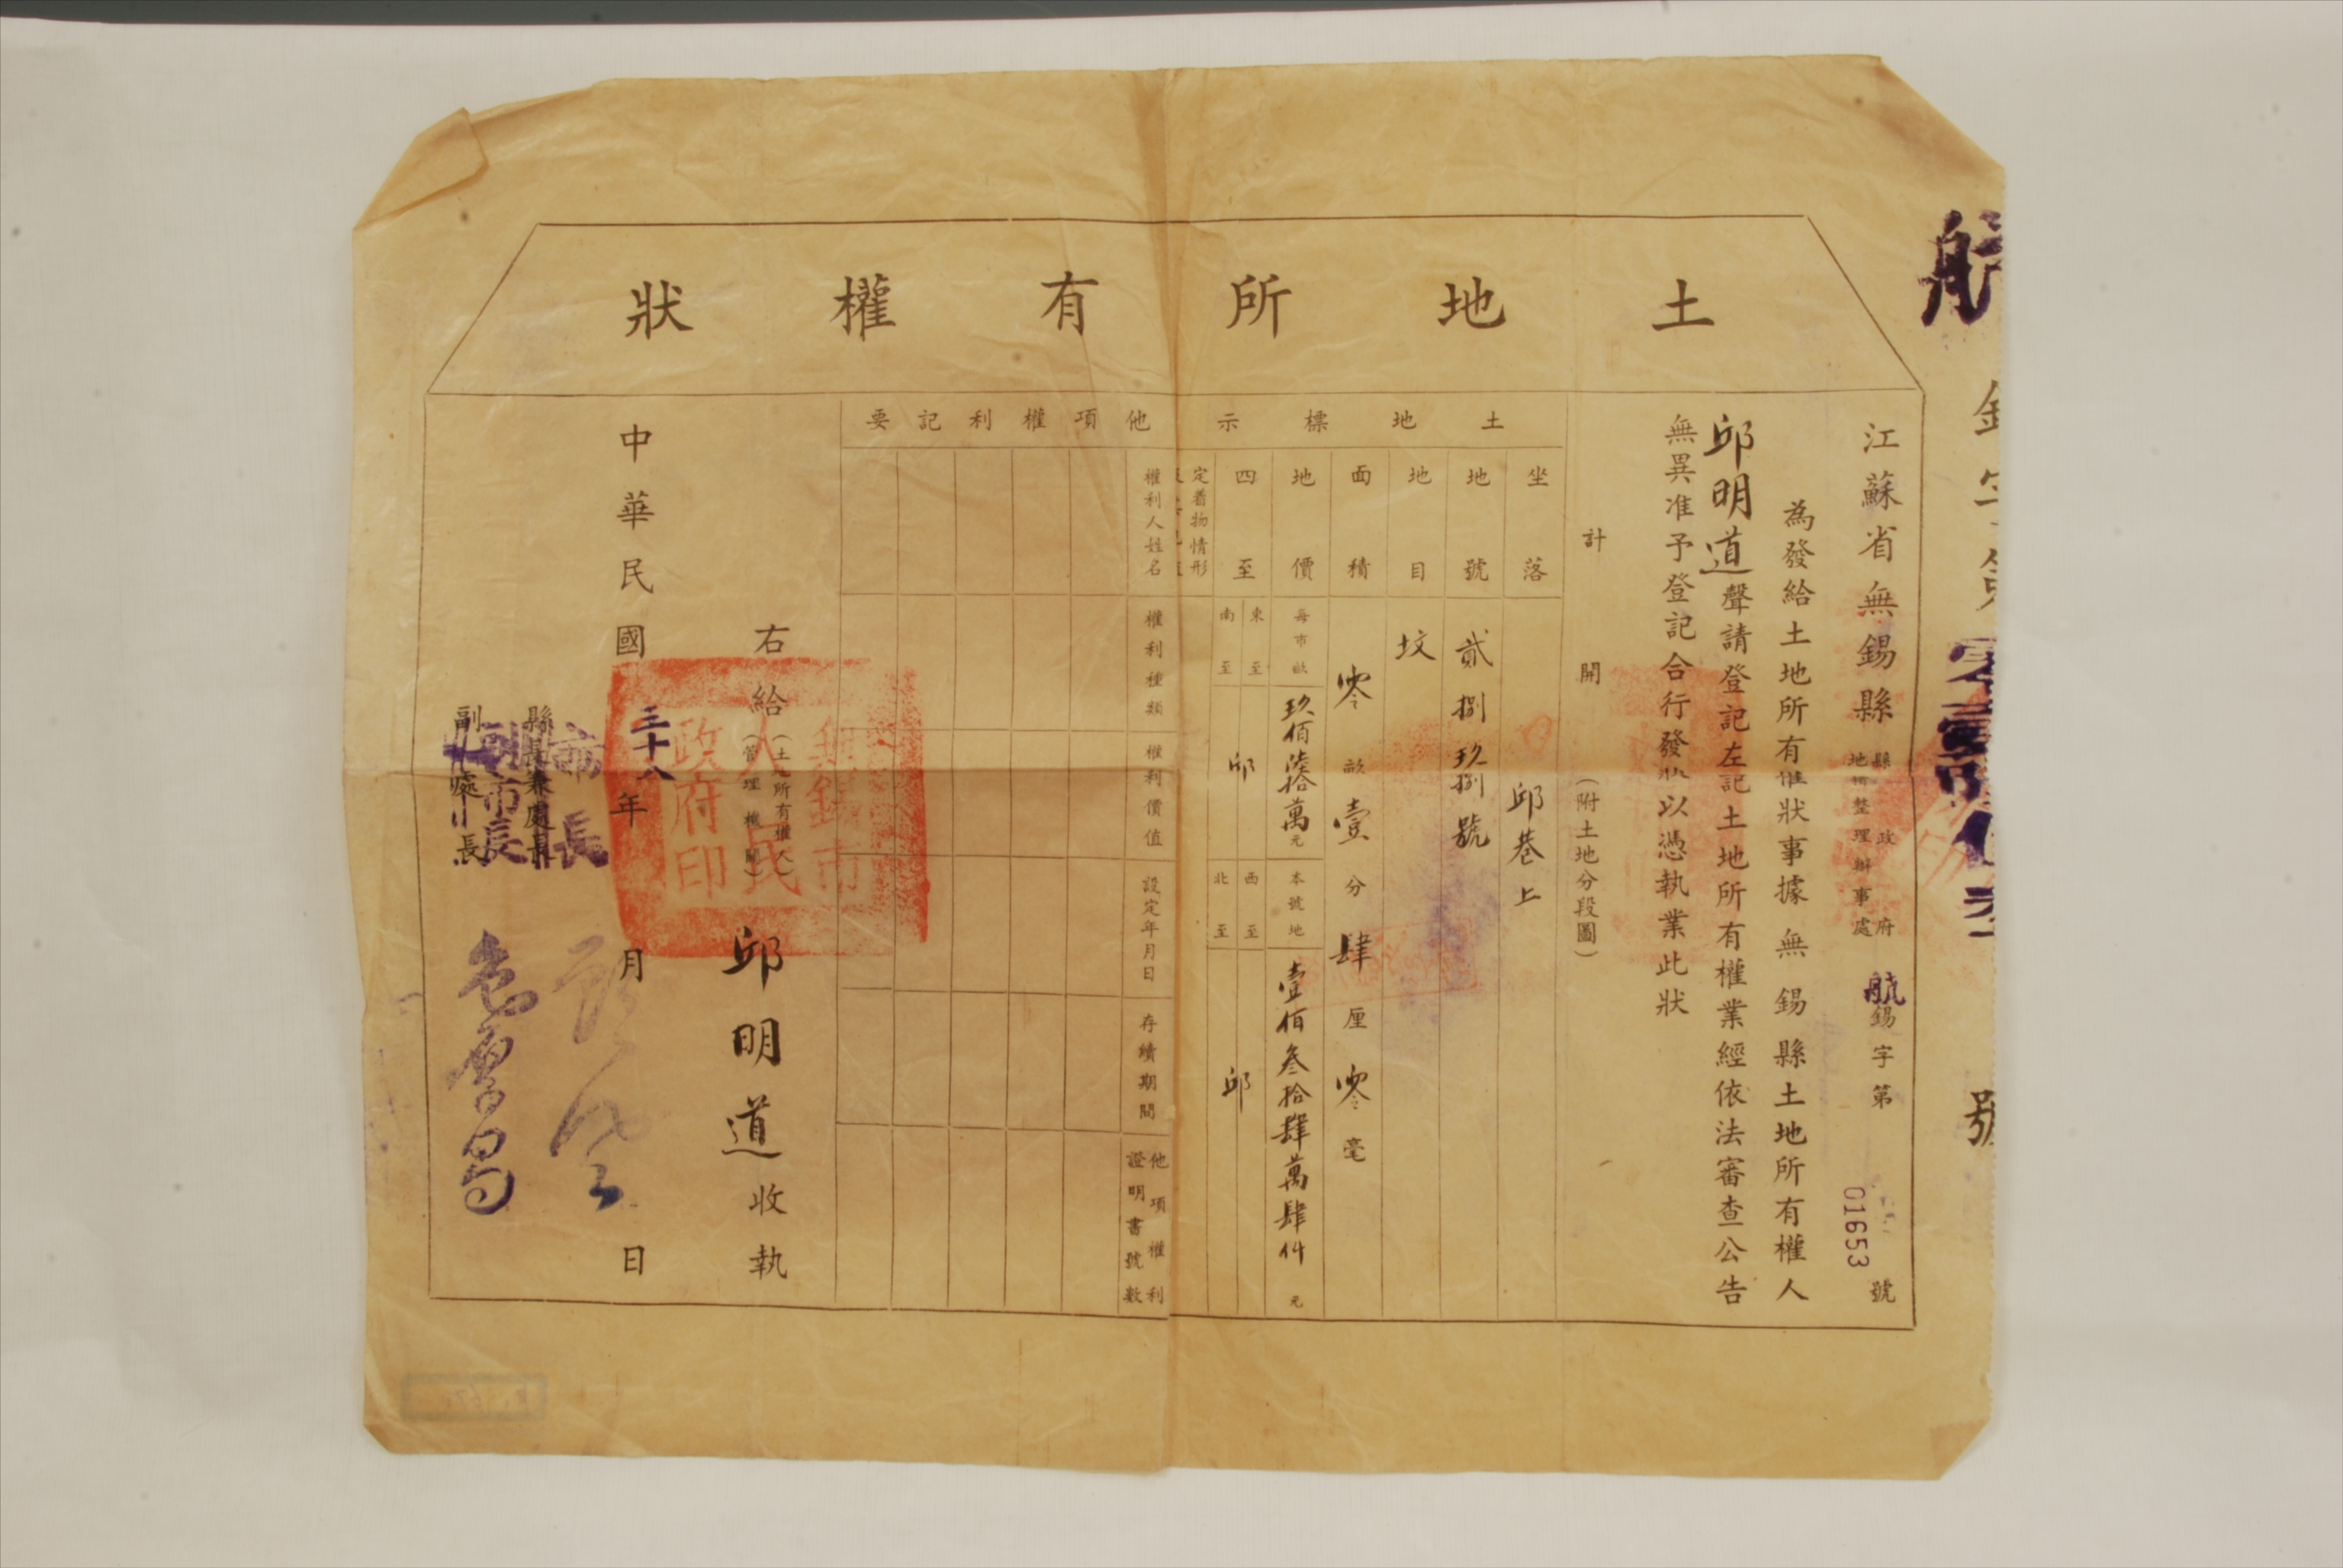 土地所有權狀
號
江蘇省無錫縣
縣政府
地籍整理辦事處
航錫字第
01653
號
為發給土地所有權狀事據無錫縣土地所有權人
邱明道聲請登記左記土地所有權業經依法審查公告
無異准予登記合行發狀以憑執業此狀
計開(附土地分段圖)
土地標示
坐落
邱巷上
地號
貳捌玖捌號
地目
坟
面積
零畝壹分肆厘零毫
地價
每市畝
玖佰陸拾萬元
本號地
壹佰叁拾肆萬肆仟元
四至
東至
西至
南至
邱
北至
邱
定着物情形
他項權利記要
權利人姓名
權利種類
權利價值
設定年月日
存續期間
他項權利
證明書號數
右給(土地所有權人)
(管理機關)
邱明道收執
無錫市
人民
政府印
中華民國三十八年月日
縣長兼處長
市長
副處長
副市長